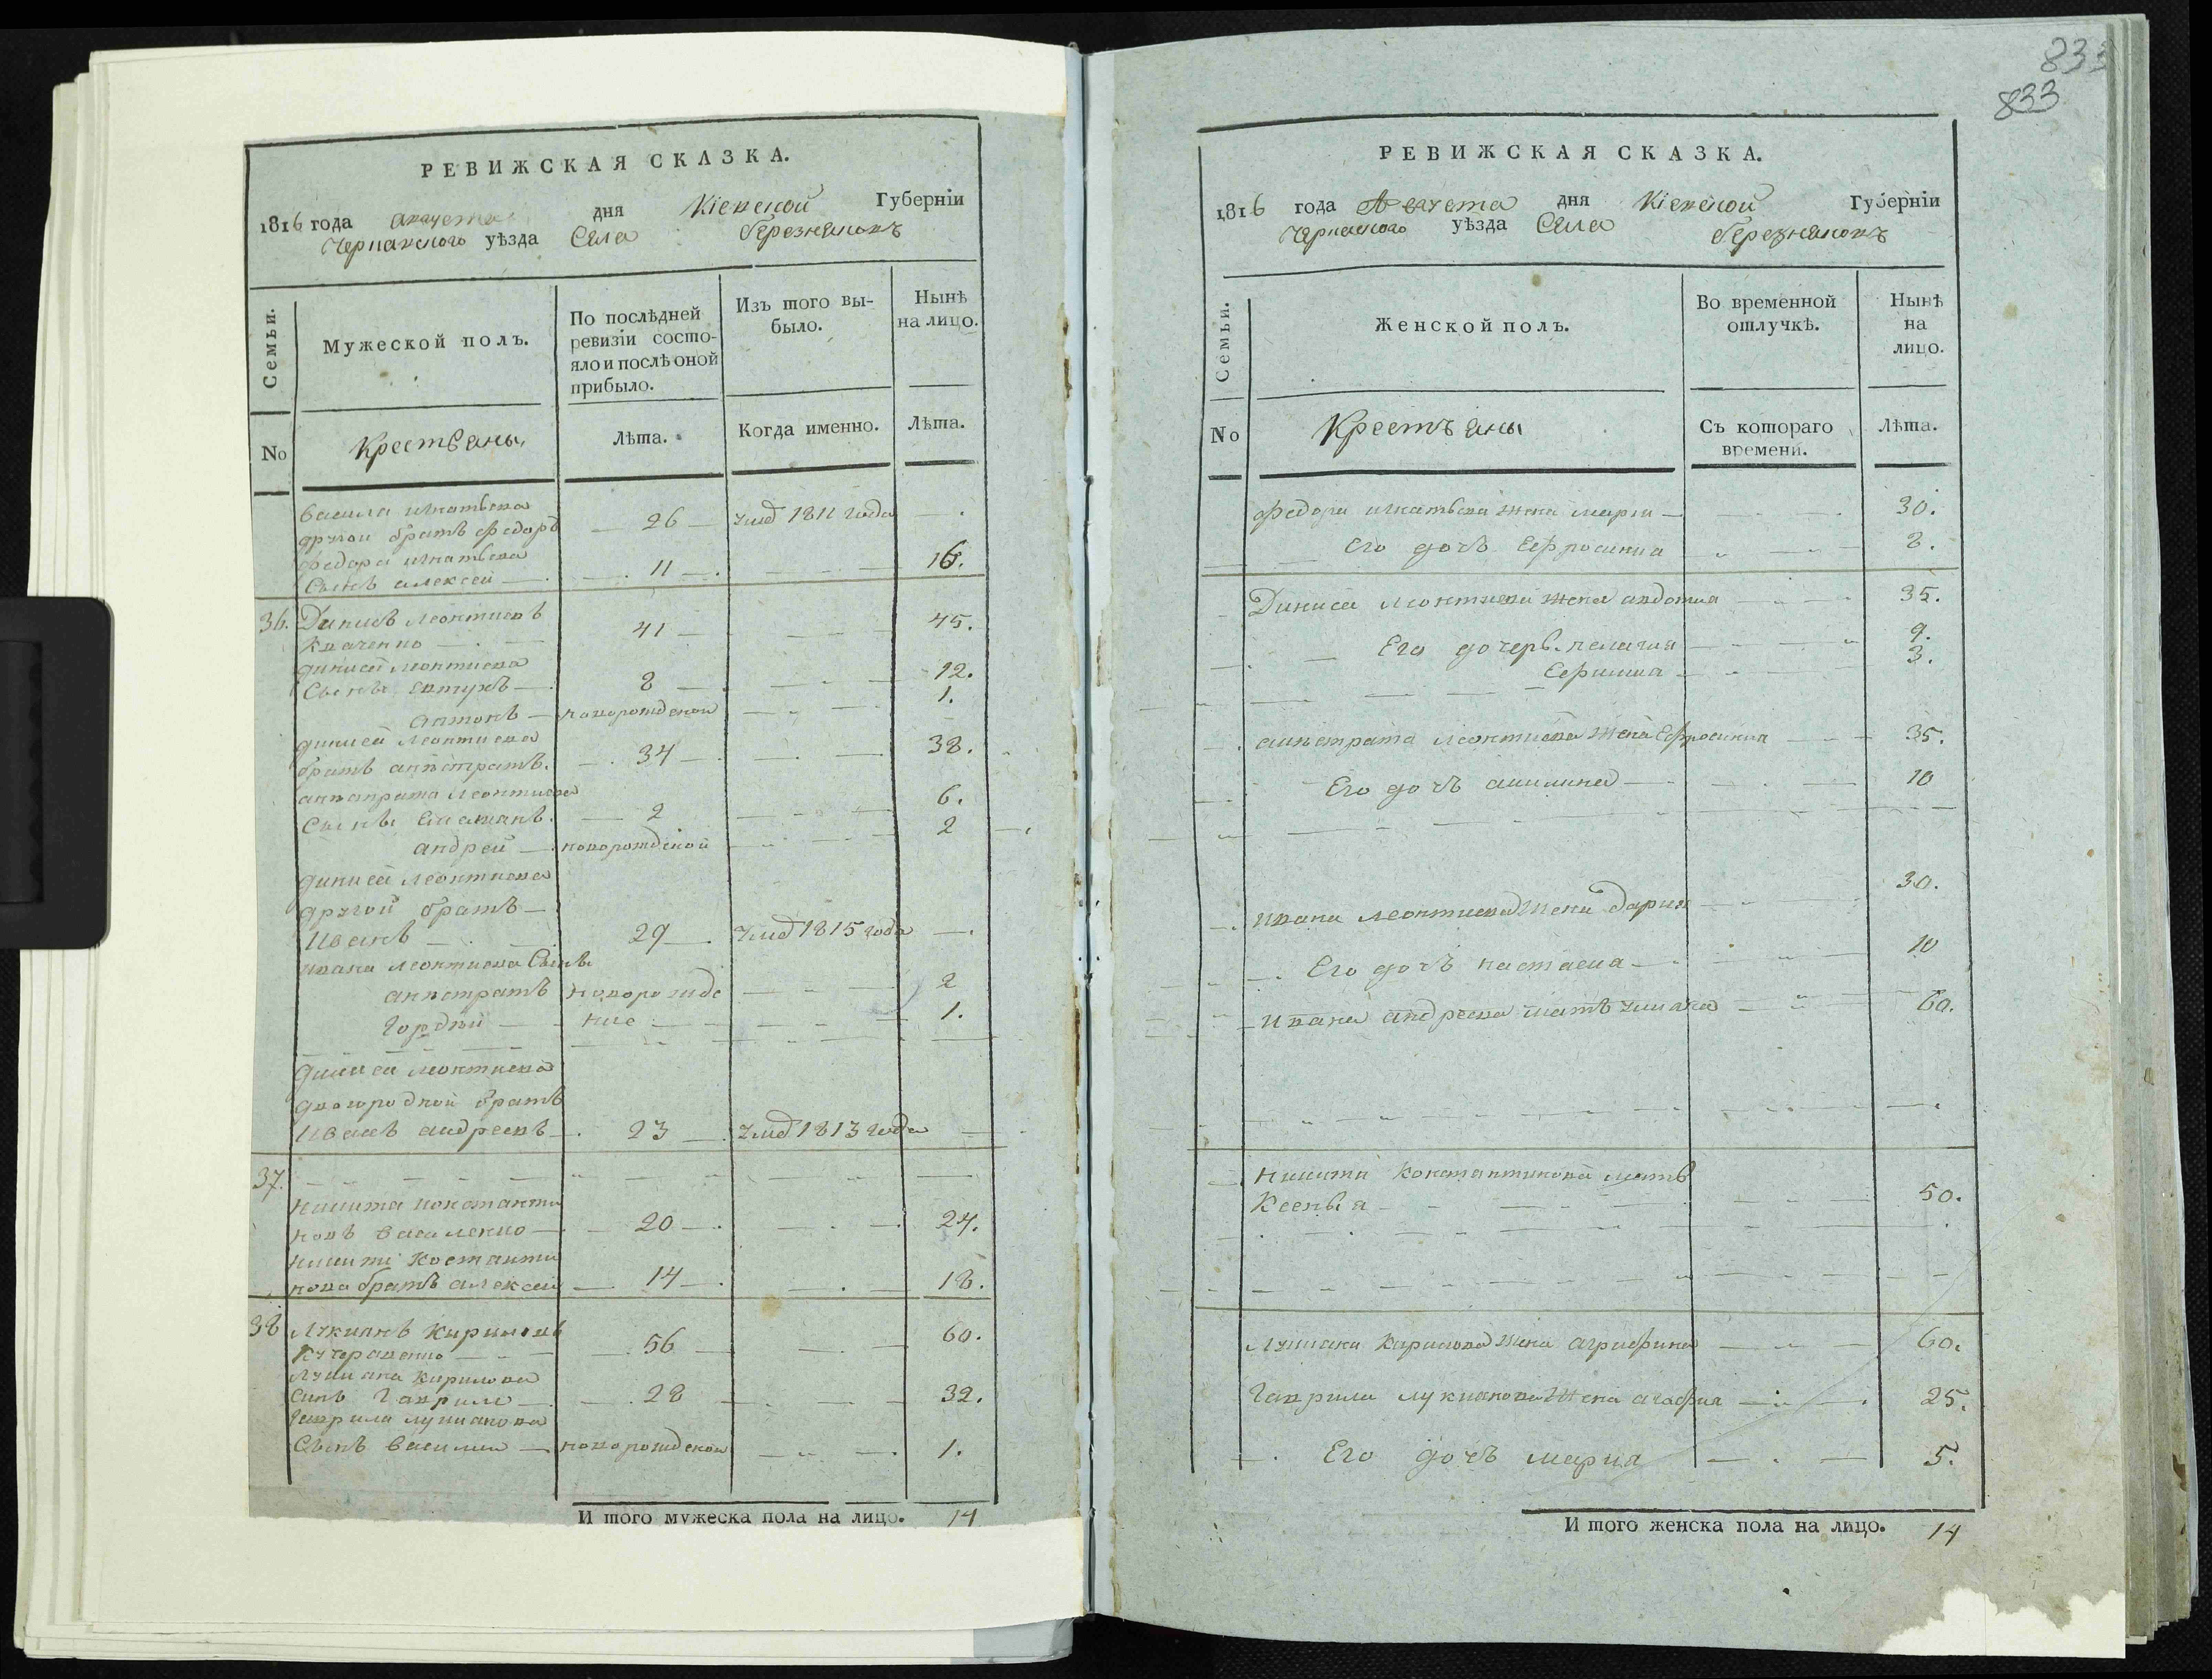 РЕВИЖСКАЯ СКАЗКА.
1816 года августа дня Кіевской Губерніи
Черкаского уѣзда Села Березняковъ
Семьи.
Мужеской полъ.
По послѣдней
ревизіи состо-
яло и послѣ оной
прибыло.
Изъ того вы-
было.
Нынѣ
на лицо.
No
Крестьяны
Лѣта.
Когда именно.
Лѣта.
василя игнатьева
другои братъ федоръ 26 1811 года
федора игнатьева
Сынъ алексеи 11 16.
36. Динисъ леонтиевъ
Кваченко 41 45.
динися леонтиева
Сынъ 8 12.
антонъ новорожденои 1.
динися леонтиева
братъ 34 38.
леонтиева
Сынъ 2 6.
андрей новорожденой 2
динися леонтиева
другой братъ
Иванъ 29 1815 года
ивана леонтиева Сынъ
новорожде 2
Гордѣй ние 1.
динися леонтиева
двоюродной братъ
Иванъ андреевъ 23 1813 года
37.
никита константи
новъ василенко 20 24.
никити Костанти
нова братъ алексеи 14 18.
38 Лукиянъ Кириловъ
60.
56
Лукияна Кирилова
Синъ Гаврило 28 32.
Гаврила лукиянова
Сынъ василии новорожденои 1.
И того мужеска пола на лицо. 14
833
833
РЕВИЖСКАЯ СКАЗКА.
1816 года Августа дня Кіевской Губерніи
Черкаского уѣзда Села Березняковъ
Семьи.
Женской полъ.
Во временной
отлучкѣ.
Нынѣ
на
лицо.
No
Крестъяны
Съ котораго
времени.
Лѣта.
федора игнатьева жена мария 30.
Его дочъ Ефросиния 8.
Динися леонтиева жена авдотиа 35.
Его дочерь пелагия 9.
Ефимия 3.
леонтиева жена Ефросиния 35.
Его дочъ акилина 10
ивана леонтиева жена дария 30.
Его дочъ настасиа 10
ивана андреева мать 60.
никити Константинова мать
Ксенья 50.
Лукияна Кирилова жена агриефина 60.
Гаврила лукиянова жена агафия 25.
Его дочъ мария 5.
И того женска пола на лицо. 14